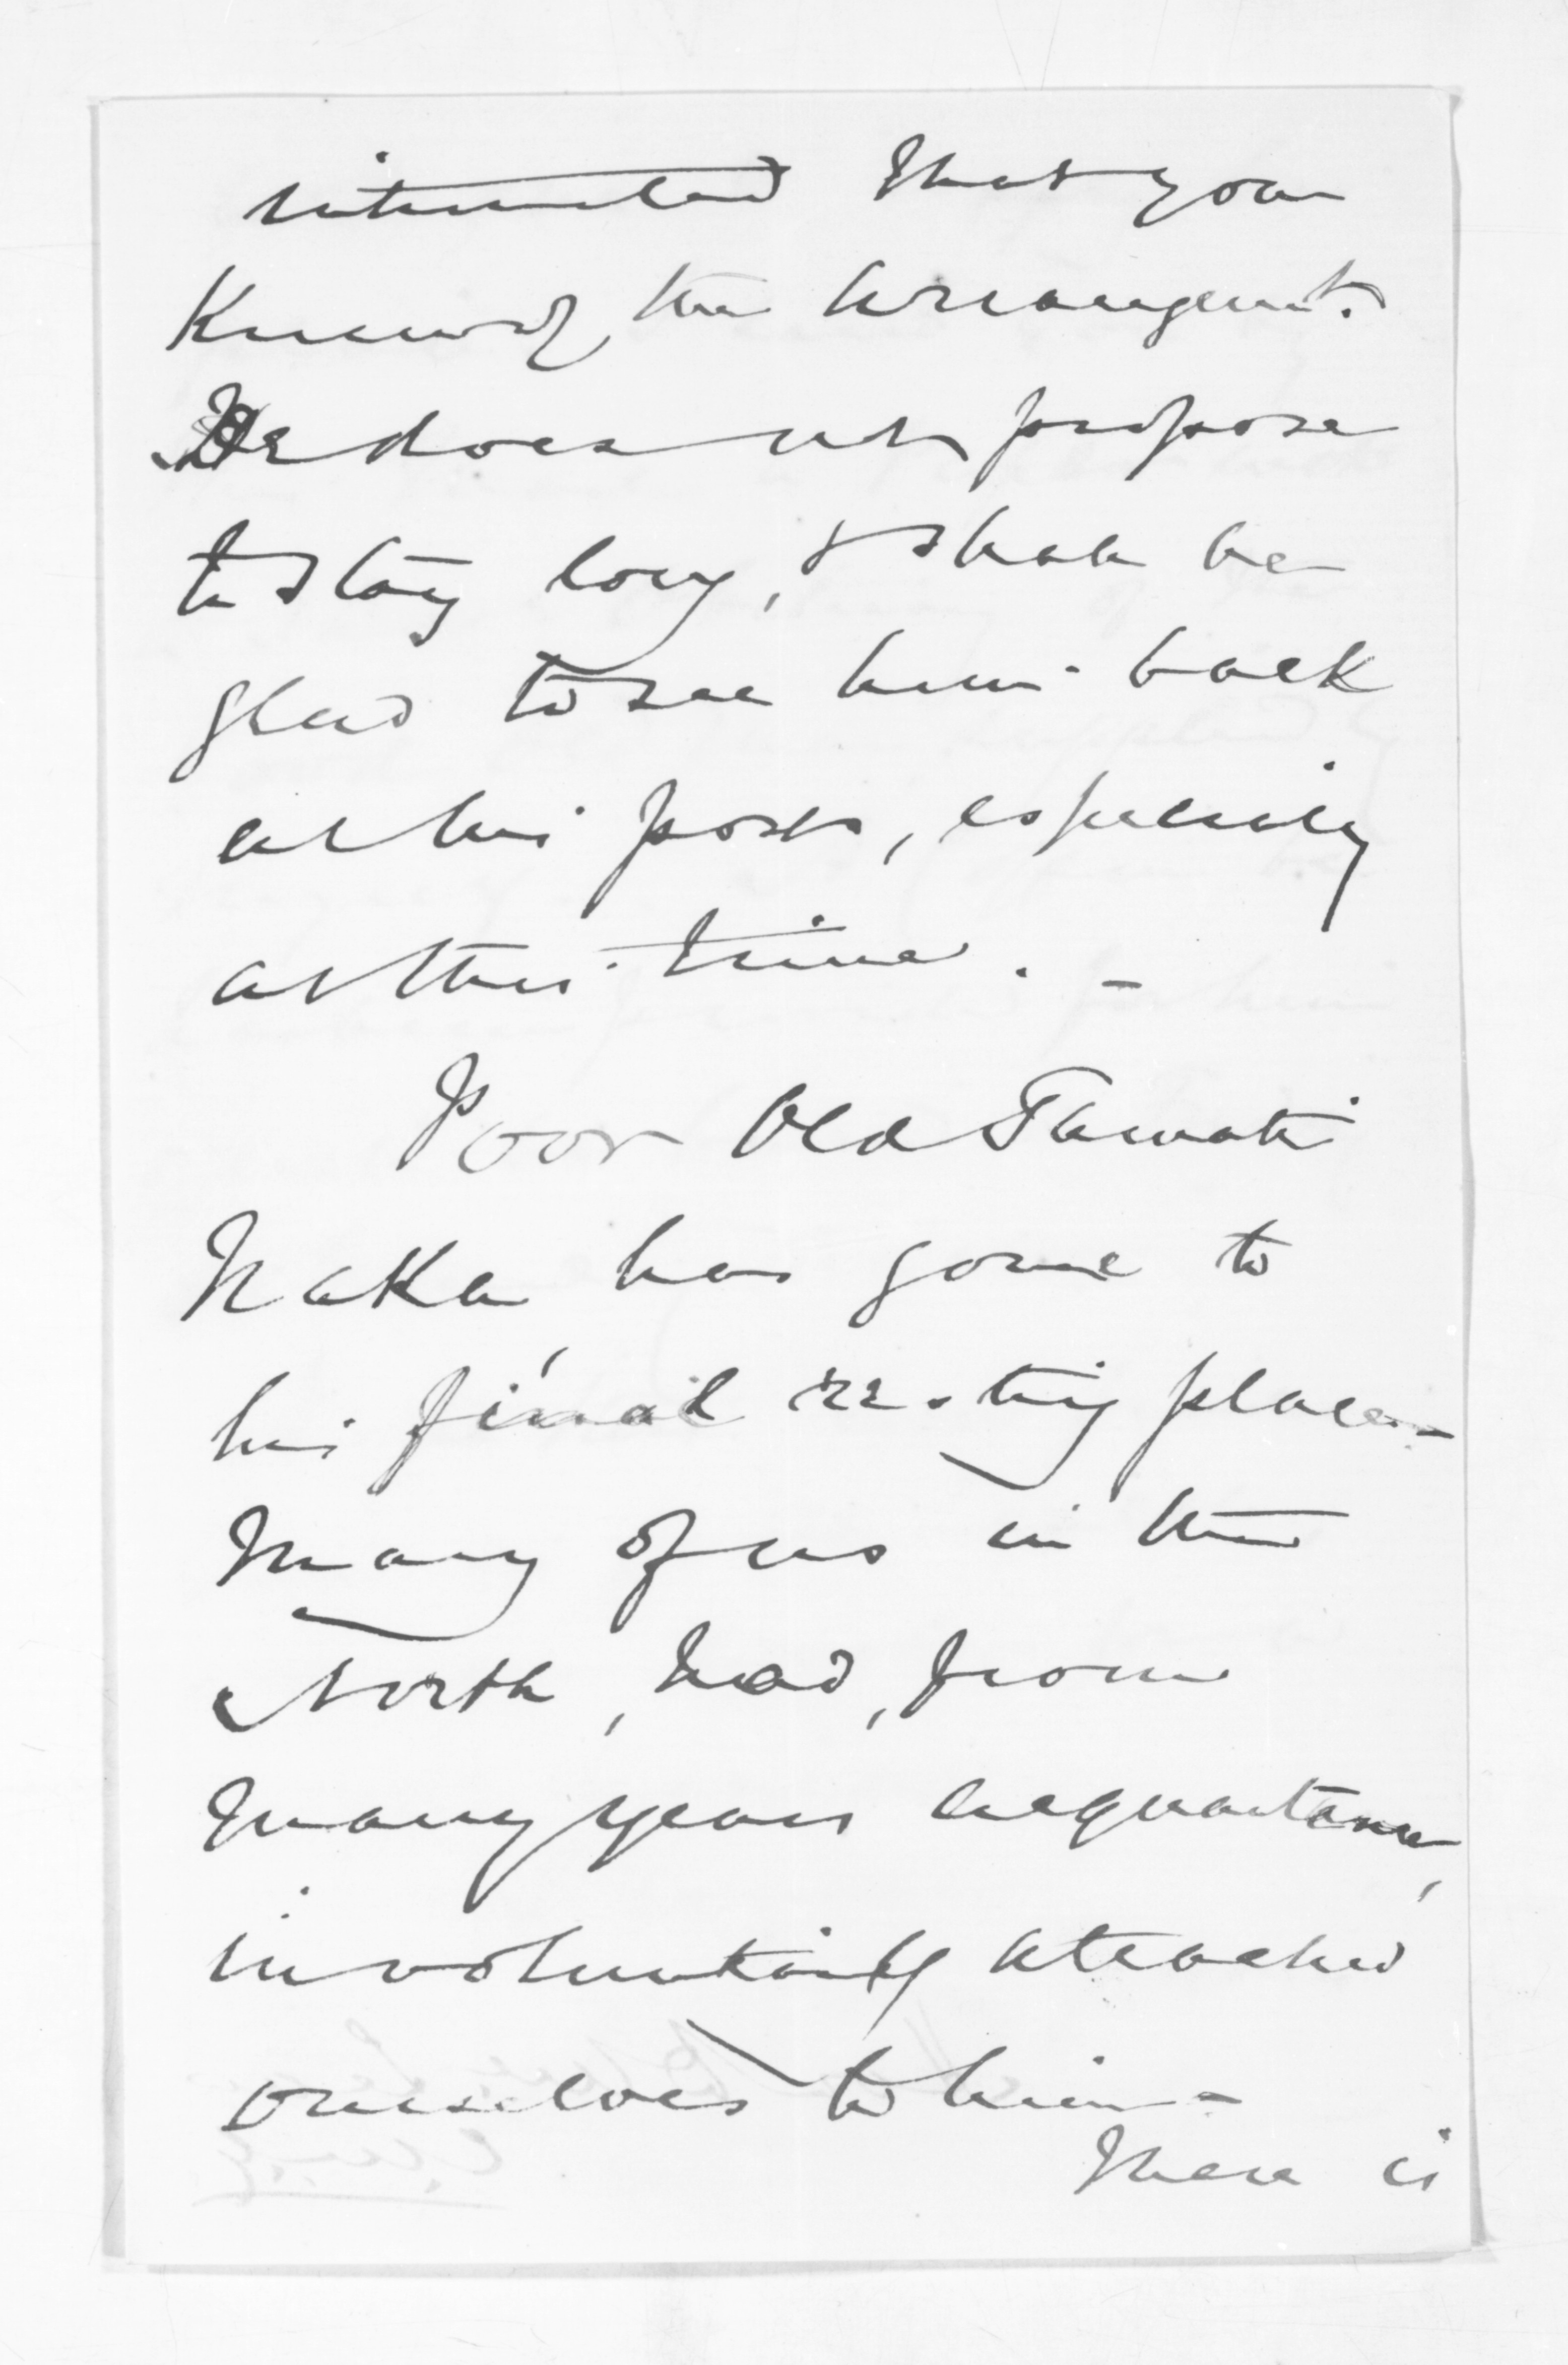 intimated that you
Knew of the arrangemt.
He does not propose
to stay long, & shall be
glad to see him back
at his post, especially
at this time. -
Poor Old Tamati
Naka, has gone to
his final resting place -
Many of us in the
North, had, from
many years acquaintance,
involuntarily attached
ourselves to him -
There is